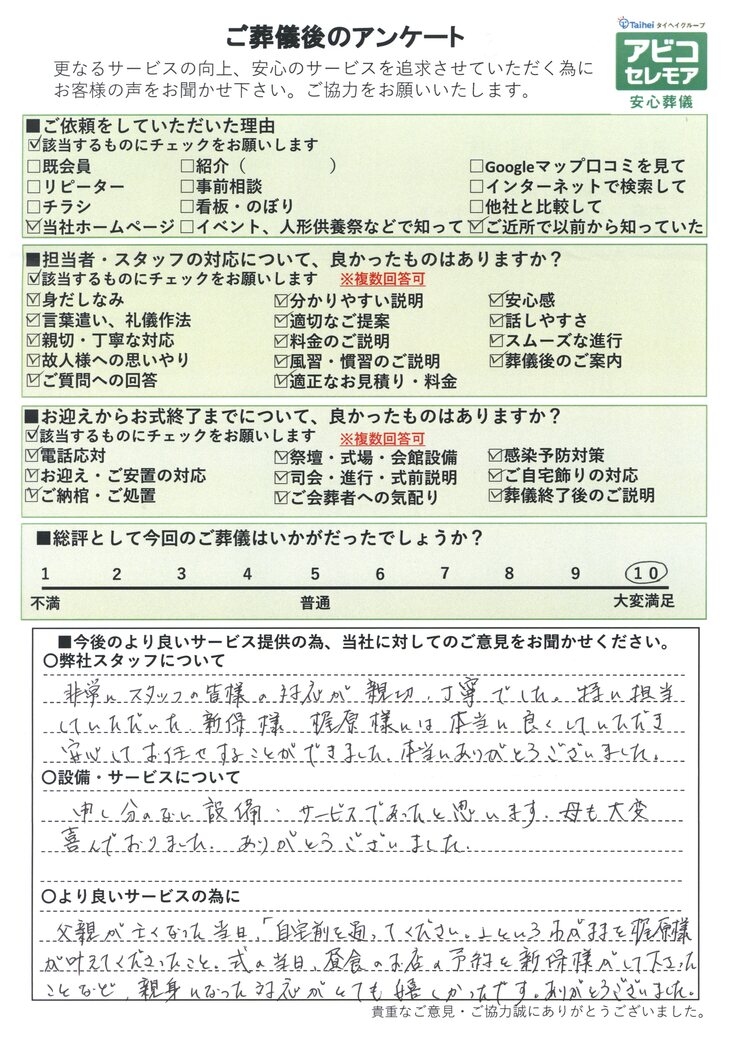 ご葬儀後のアンケート
Taihei タイヘイグループ
アビコ
セレモア
安心葬儀
更なるサービスの向上、安心のサービスを追求させていただく為に
お客様の声をお聞かせ下さい。ご協力をお願いいたします。
■ご依頼をしていただいた理由
☑該当するものにチェックをお願いします
□既会員 □紹介（　　　　　） □Googleマップ口コミを見て
□リピーター □事前相談 □インターネットで検索して
□チラシ □看板・のぼり □他社と比較して
☑当社ホームページ □イベント、人形供養祭などで知って ☑ご近所で以前から知っていた
■担当者・スタッフの対応について、良かったものはありますか？
☑該当するものにチェックをお願いします ※複数回答可
☑身だしなみ ☑分かりやすい説明 ☑安心感
☑言葉遣い、礼儀作法 ☑適切なご提案 ☑話しやすさ
☑親切・丁寧な対応 ☑料金のご説明 ☑スムーズな進行
☑故人様への思いやり ☑風習・慣習のご説明 ☑葬儀後のご案内
☑ご質問への回答 ☑適正なお見積り・料金
■お迎えからお式終了までについて、良かったものはありますか？
☑該当するものにチェックをお願いします ※複数回答可
☑電話応対 ☑祭壇・式場・会館設備 ☑感染予防対策
☑お迎え・ご安置の対応 ☑司会・進行・式前説明 ☑ご自宅飾りの対応
☑ご納棺・ご処置 ☑ご会葬者への気配り ☑葬儀終了後のご説明
■総評として今回のご葬儀はいかがだったでしょうか？
1 2 3 4 5 6 7 8 9 10
不満 普通 大変満足
■今後のより良いサービス提供の為、当社に対してのご意見をお聞かせください。
〇弊社スタッフについて
非常にスタッフの皆様の対応が親切、丁寧でした。特に担当
していただいた新保様 梶原様には本当に良くしていただき
安心してお任せすることができました。本当にありがとうございました。
〇設備・サービスについて
申し分のない設備・サービスであったと思います。母も大変
喜んでおりました。ありがとうございました。
〇より良いサービスの為に
父親が亡くなった当日、「自宅前を通ってください。」というわがままを梶原様
が叶えてくださったこと。式の当日、昼食のお店の予約を新保様がして下さった
ことなど、親身になった対応がとても嬉しかったです。ありがとうございました。
貴重なご意見・ご協力誠にありがとうございました。